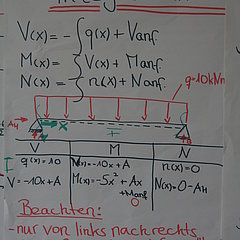 V(x) = -∫q(x) + Vanf.
M(x) = ∫V(x) + Manf.
N(x) = -∫n(x) + Nanf.
q=10kNm
AH
x
+
V M N
I q(x)=10 V(x)=-10x+A n(x)=0
V=-10x+A M(x)=-5x²+Ax N(x)=0-AH
+Manf
0
Beachten:
-nur von links nach rechts